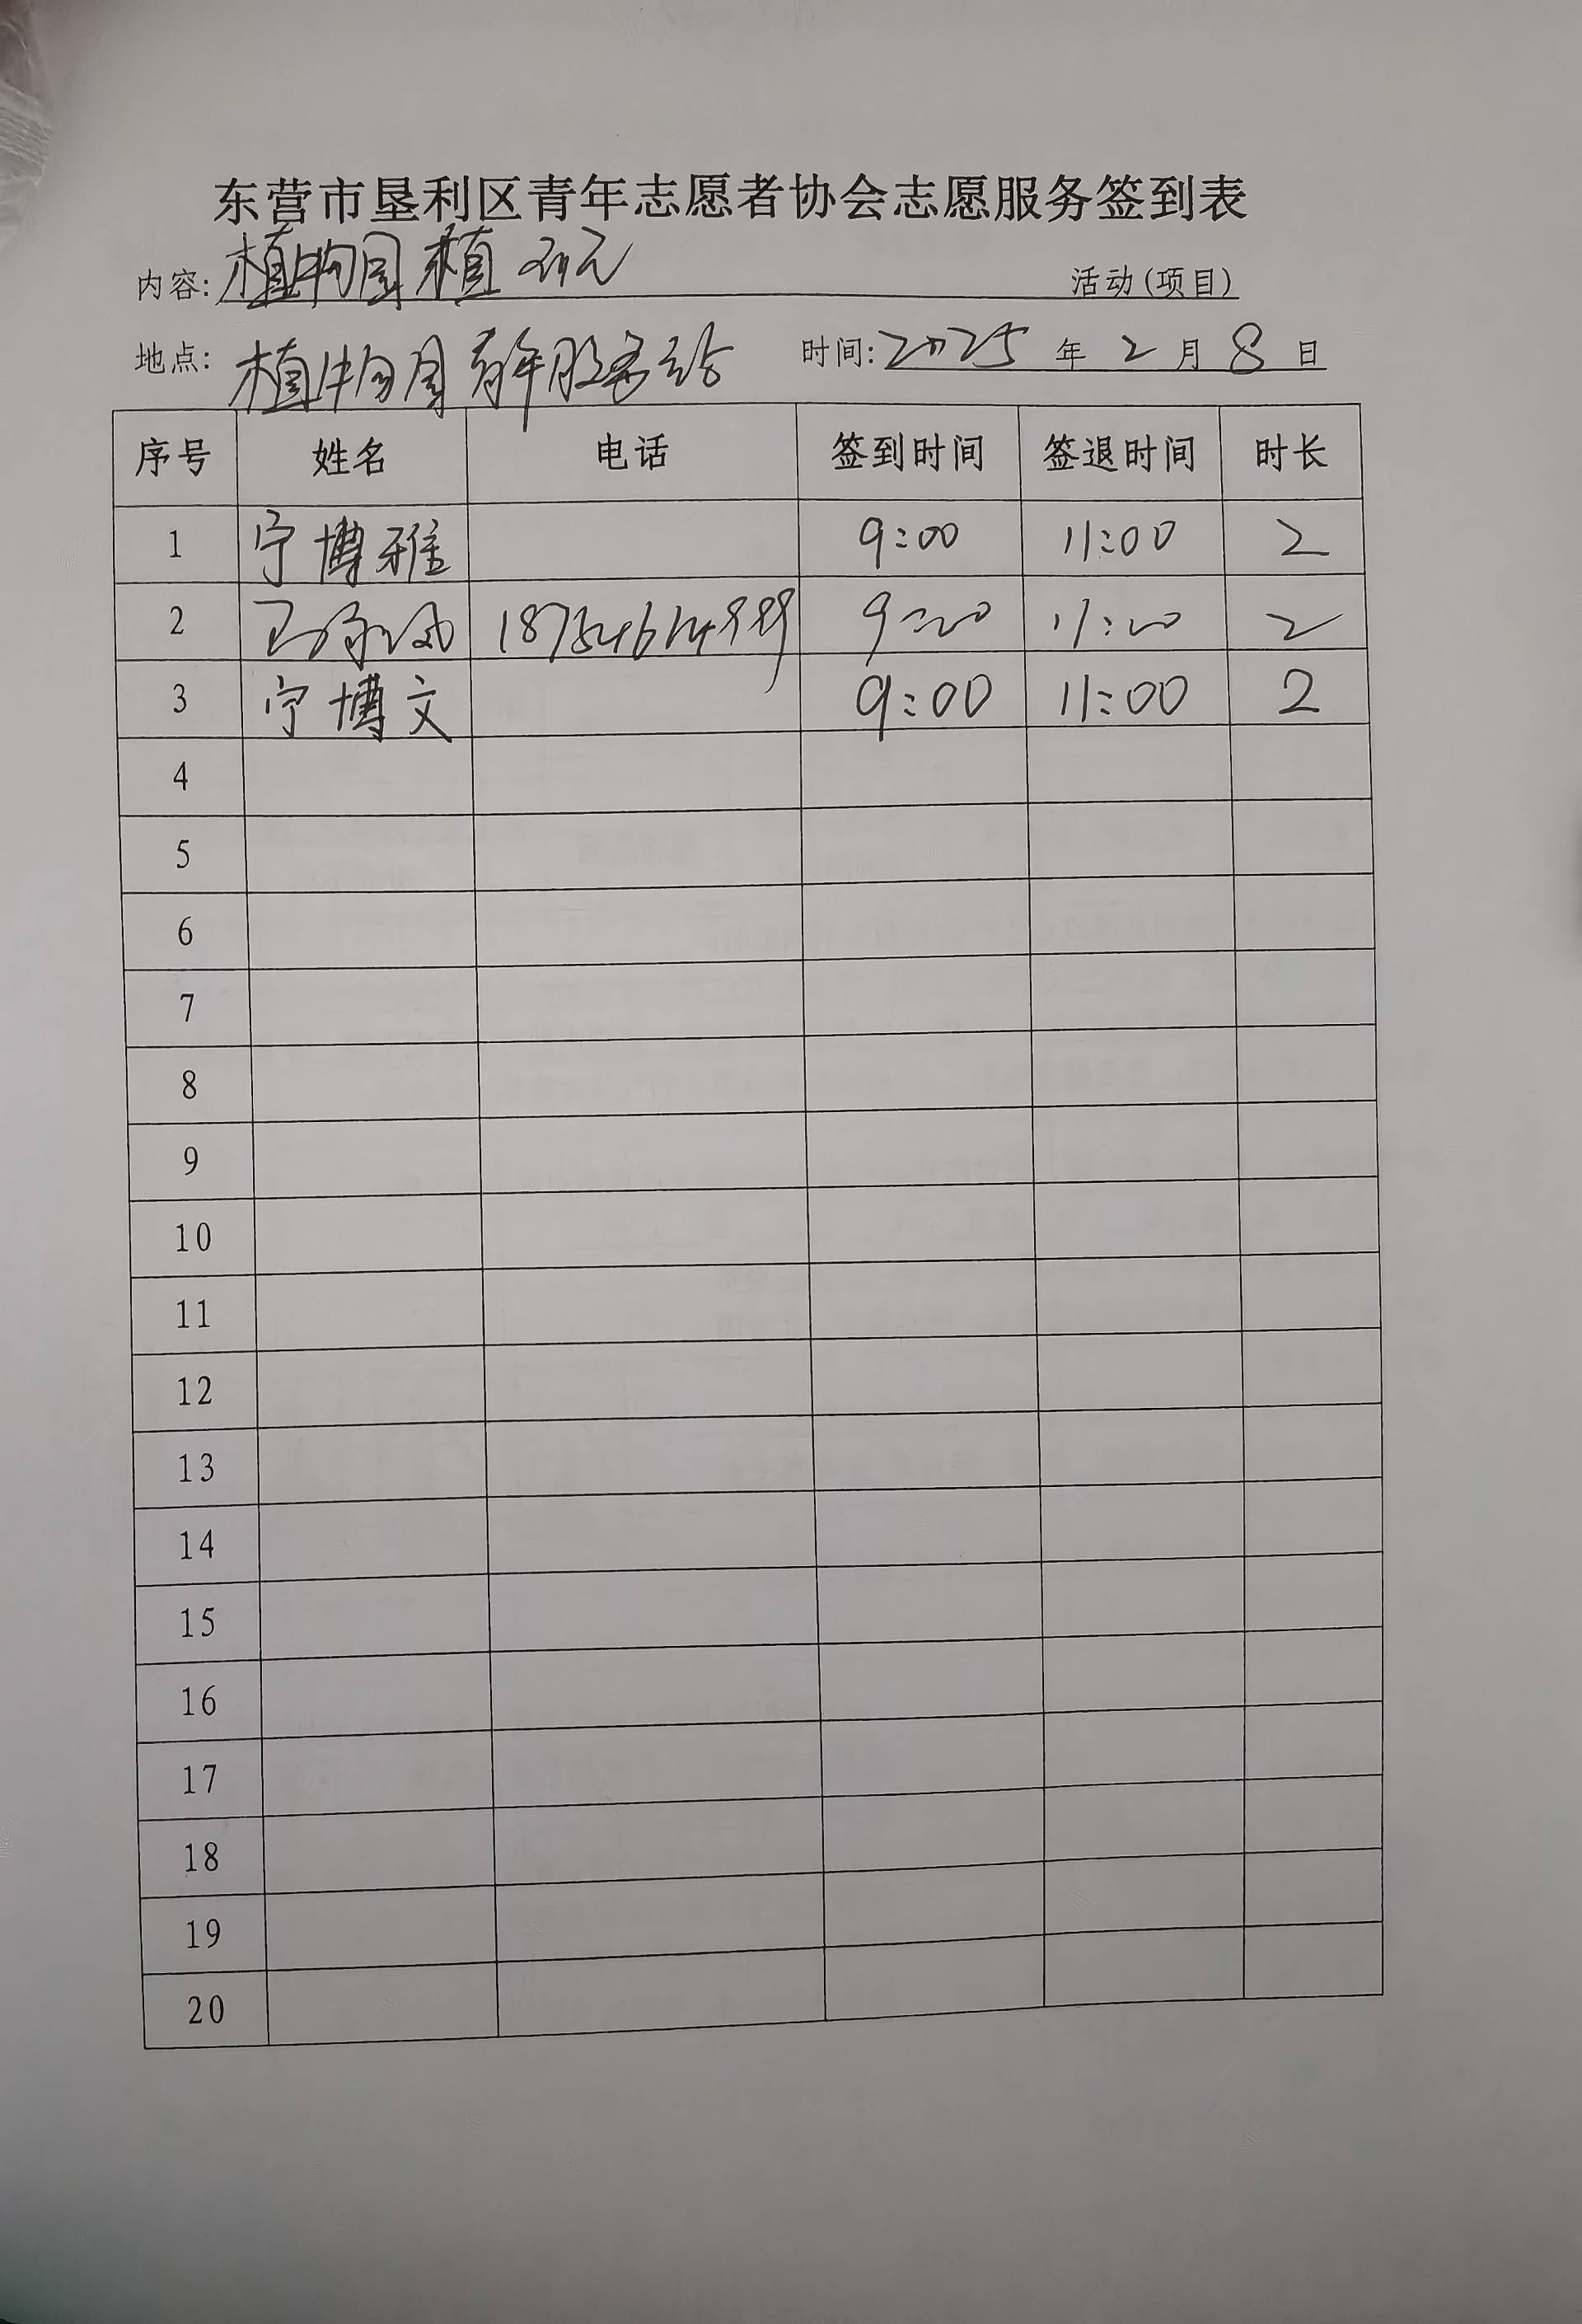 东营市垦利区青年志愿者协会志愿服务签到表
内容: 植物园植 活动(项目)
地点: 植物园青年服务站 时间: 2025 年 2 月 8 日
序号 姓名 电话 签到时间 签退时间 时长
1 宁博雅 9:00 11:00 2
2 9:00 11:00 2
3 宁博文 9:00 11:00 2
4
5
6
7
8
9
10
11
12
13
14
15
16
17
18
19
20